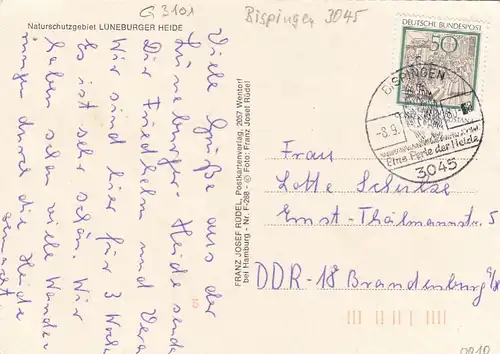 G 3101
Bispingen 3045
Naturschutzgebiet LÜNEBURGER HEIDE
Viele Grüße aus der
Lüneburger Heide sendet
Dir Friedhelm und Vera
Wir sind hier für 3 Wochen
Es ist sehr schön. Wir
haben schon viele Wander
ungen durch die Heide
gemacht
FRANZ JOSEF RÜDEL, Postkartenverlag, 2057 Wentorf
bei Hamburg - Nr. F-288 - © Foto: Franz Josef Rüdel
DEUTSCHE BUNDESPOST
50
BISPINGEN
-8.9.
Eine Perle der Heide
3045
Frau
Lotte Schulze
Ernst-Thälmannstr. 5
DDR-18 Brandenburg